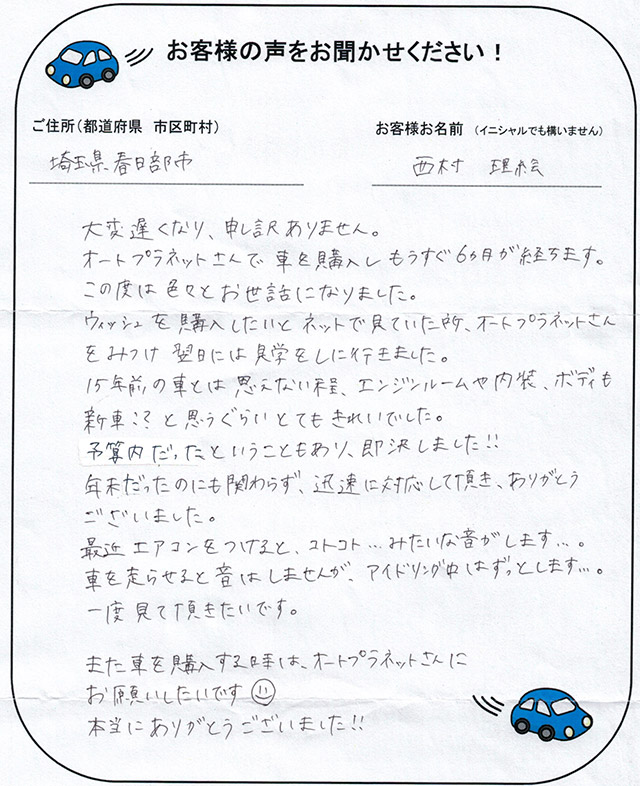 お客様の声をお聞かせください！
ご住所（都道府県　市区町村）
お客様お名前　（イニシャルでも構いません）
埼玉県春日部市
西村　理絵
大変遅くなり、申し訳ありません。
オートプラネットさんで車を購入しもうすぐ6カ月が経ちます。
この度は色々とお世話になりました。
ウィッシュを購入したいとネットで見ていた所、オートプラネットさん
をみつけ翌日には見学をしに行きました。
15年前の車とは思えない程、エンジンルームや内装、ボディも
新車??と思うぐらいとてもきれいでした。
予算内だったということもあり、即決しました!!
年末だったのにも関わらず、迅速に対応して頂き、ありがとう
ございました。
最近エアコンをつけると、コトコト…みたいな音がします…。
車を走らせると音はしませんが、アイドリング中はずっとします…。
一度見て頂きたいです。
また車を購入する時は、オートプラネットさんに
お願いしたいです☺
本当にありがとうございました!!